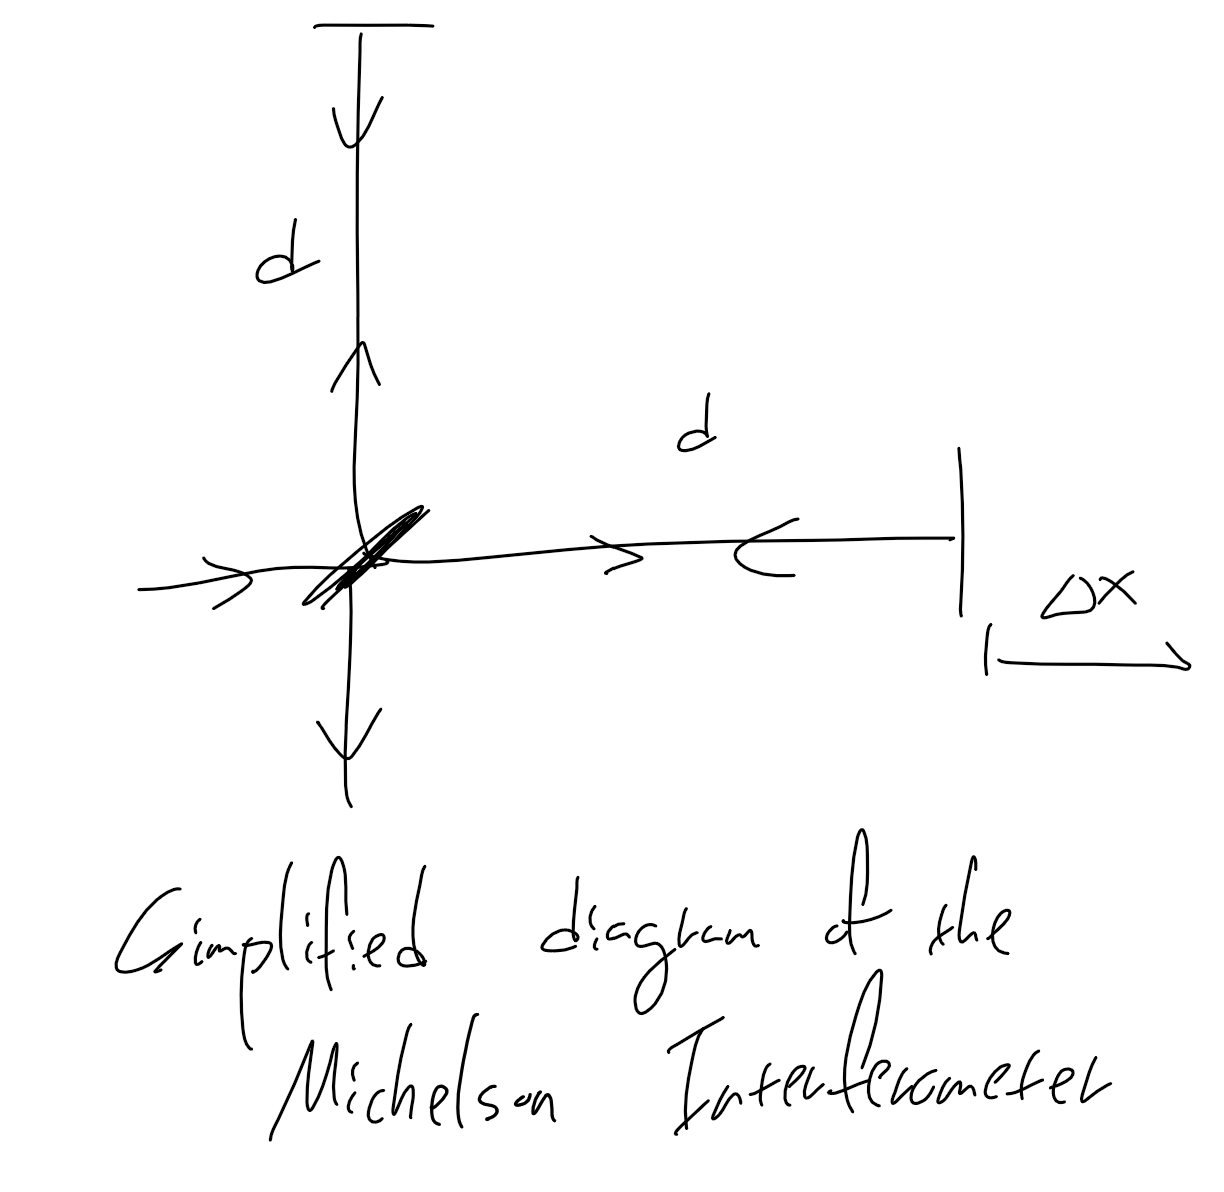 d
d
Δx
Simplified diagram of the
Michelson Interferometer